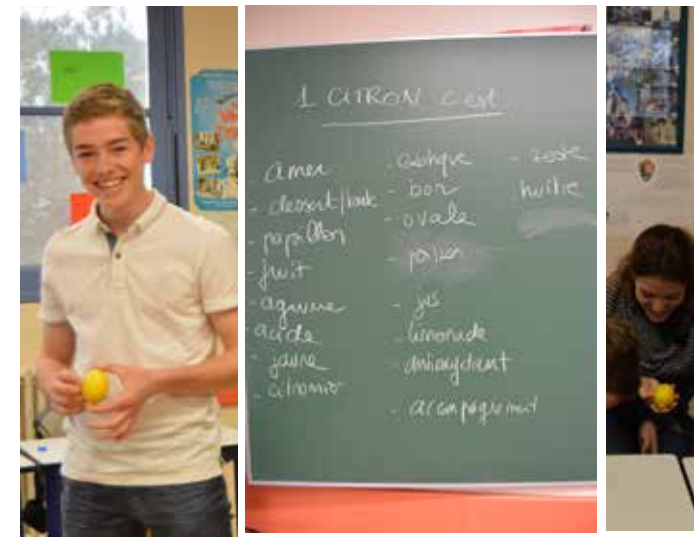 1 CITRON c'est
- amer
- dessert/
- papillon
- fruit
- agrume
- acide
- jaune
- citronnier
- bon
- ovale
- jus
- limonade
- antioxydant
- accompagnement
- zeste
huître